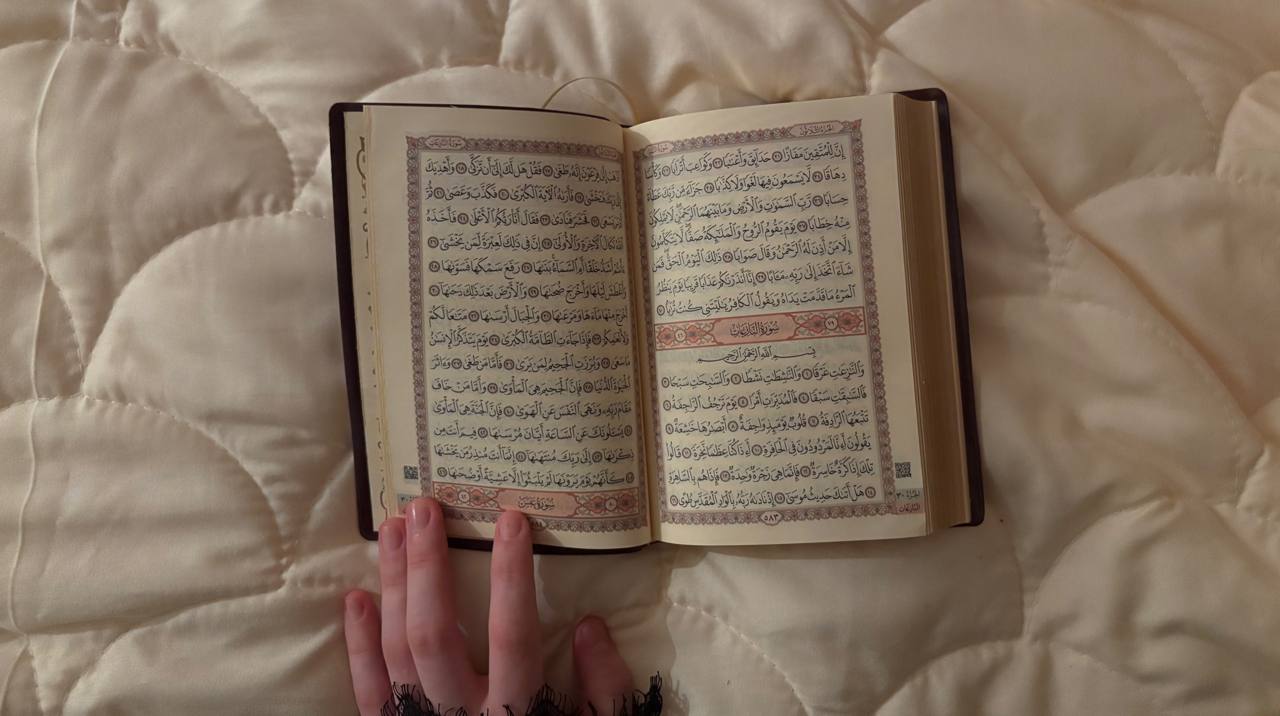 الجزء الثلاثون
إِنَّ لِلْمُتَّقِينَ مَفَازًا ٣١ حَدَآئِقَ وَأَعْنَٰبًا ٣٢ وَكَوَاعِبَ أَتْرَابًا ٣٣ وَكَأْسًا
دِهَاقًا ٣٤ لَّا يَسْمَعُونَ فِيهَا لَغْوًا وَلَا كِذَّٰبًا ٣٥ جَزَآءً مِّن رَّبِّكَ عَطَآءً
حِسَابًا ٣٦ رَّبِّ ٱلسَّمَٰوَٰتِ وَٱلْأَرْضِ وَمَا بَيْنَهُمَا ٱلرَّحْمَٰنِ لَا يَمْلِكُونَ
مِنْهُ خِطَابًا ٣٧ يَوْمَ يَقُومُ ٱلرُّوحُ وَٱلْمَلَٰٓئِكَةُ صَفًّا لَّا يَتَكَلَّمُونَ
إِلَّا مَنْ أَذِنَ لَهُ ٱلرَّحْمَٰنُ وَقَالَ صَوَابًا ٣٨ ذَٰلِكَ ٱلْيَوْمُ ٱلْحَقُّ فَمَن
شَآءَ ٱتَّخَذَ إِلَىٰ رَبِّهِۦ مَـَٔابًا ٣٩ إِنَّآ أَنذَرْنَٰكُمْ عَذَابًا قَرِيبًا يَوْمَ يَنظُرُ
ٱلْمَرْءُ مَا قَدَّمَتْ يَدَاهُ وَيَقُولُ ٱلْكَافِرُ يَٰلَيْتَنِى كُنتُ تُرَٰبًا ٤٠
٧٩ سُورَةُ النَّازِعَاتِ ٤٦
بِسْمِ ٱللَّهِ ٱلرَّحْمَٰنِ ٱلرَّحِيمِ
وَٱلنَّٰزِعَٰتِ غَرْقًا ١ وَٱلنَّٰشِطَٰتِ نَشْطًا ٢ وَٱلسَّٰبِحَٰتِ سَبْحًا ٣
فَٱلسَّٰبِقَٰتِ سَبْقًا ٤ فَٱلْمُدَبِّرَٰتِ أَمْرًا ٥ يَوْمَ تَرْجُفُ ٱلرَّاجِفَةُ ٦
تَتْبَعُهَا ٱلرَّادِفَةُ ٧ قُلُوبٌ يَوْمَئِذٍ وَاجِفَةٌ ٨ أَبْصَٰرُهَا خَٰشِعَةٌ ٩
يَقُولُونَ أَءِنَّا لَمَرْدُودُونَ فِى ٱلْحَافِرَةِ ١٠ أَءِذَا كُنَّا عِظَٰمًا نَّخِرَةً ١١ قَالُوا۟
تِلْكَ إِذًا كَرَّةٌ خَاسِرَةٌ ١٢ فَإِنَّمَا هِىَ زَجْرَةٌ وَٰحِدَةٌ ١٣ فَإِذَا هُم بِٱلسَّاهِرَةِ
١٤ هَلْ أَتَىٰكَ حَدِيثُ مُوسَىٰٓ ١٥ إِذْ نَادَىٰهُ رَبُّهُۥ بِٱلْوَادِ ٱلْمُقَدَّسِ طُوًى ١٦
٥٨٣
الجزء ٣٠
النازعات
سورة النازعات
ٱذْهَبْ إِلَىٰ فِرْعَوْنَ إِنَّهُۥ طَغَىٰ ١٧ فَقُلْ هَل لَّكَ إِلَىٰٓ أَن تَزَكَّىٰ ١٨ وَأَهْدِيَكَ
إِلَىٰ رَبِّكَ فَتَخْشَىٰ ١٩ فَأَرَىٰهُ ٱلْـَٔايَةَ ٱلْكُبْرَىٰ ٢٠ فَكَذَّبَ وَعَصَىٰ ٢١ ثُمَّ
أَدْبَرَ يَسْعَىٰ ٢٢ فَحَشَرَ فَنَادَىٰ ٢٣ فَقَالَ أَنَا۠ رَبُّكُمُ ٱلْأَعْلَىٰ ٢٤ فَأَخَذَهُ
ٱللَّهُ نَكَالَ ٱلْـَٔاخِرَةِ وَٱلْأُولَىٰٓ ٢٥ إِنَّ فِى ذَٰلِكَ لَعِبْرَةً لِّمَن يَخْشَىٰٓ ٢٦
ءَأَنتُمْ أَشَدُّ خَلْقًا أَمِ ٱلسَّمَآءُ بَنَىٰهَا ٢٧ رَفَعَ سَمْكَهَا فَسَوَّىٰهَا ٢٨
وَأَغْطَشَ لَيْلَهَا وَأَخْرَجَ ضُحَىٰهَا ٢٩ وَٱلْأَرْضَ بَعْدَ ذَٰلِكَ دَحَىٰهَآ ٣٠
أَخْرَجَ مِنْهَا مَآءَهَا وَمَرْعَىٰهَا ٣١ وَٱلْجِبَالَ أَرْسَىٰهَا ٣٢ مَتَٰعًا لَّكُمْ
وَلِأَنْعَٰمِكُمْ ٣٣ فَإِذَا جَآءَتِ ٱلطَّآمَّةُ ٱلْكُبْرَىٰ ٣٤ يَوْمَ يَتَذَكَّرُ ٱلْإِنسَٰنُ
مَا سَعَىٰ ٣٥ وَبُرِّزَتِ ٱلْجَحِيمُ لِمَن يَرَىٰ ٣٦ فَأَمَّا مَن طَغَىٰ ٣٧ وَءَاثَرَ
ٱلْحَيَوٰةَ ٱلدُّنْيَا ٣٨ فَإِنَّ ٱلْجَحِيمَ هِىَ ٱلْمَأْوَىٰ ٣٩ وَأَمَّا مَنْ خَافَ
مَقَامَ رَبِّهِۦ وَنَهَى ٱلنَّفْسَ عَنِ ٱلْهَوَىٰ ٤٠ فَإِنَّ ٱلْجَنَّةَ هِىَ ٱلْمَأْوَىٰ ٤١
يَسْـَٔلُونَكَ عَنِ ٱلسَّاعَةِ أَيَّانَ مُرْسَىٰهَا ٤٢ فِيمَ أَنتَ مِن
ذِكْرَىٰهَآ ٤٣ إِلَىٰ رَبِّكَ مُنتَهَىٰهَآ ٤٤ إِنَّمَآ أَنتَ مُنذِرُ مَن يَخْشَىٰهَا
٤٥ كَأَنَّهُمْ يَوْمَ يَرَوْنَهَا لَمْ يَلْبَثُوٓا۟ إِلَّا عَشِيَّةً أَوْ ضُحَىٰهَا ٤٦
سُورَةُ عَبَسَ